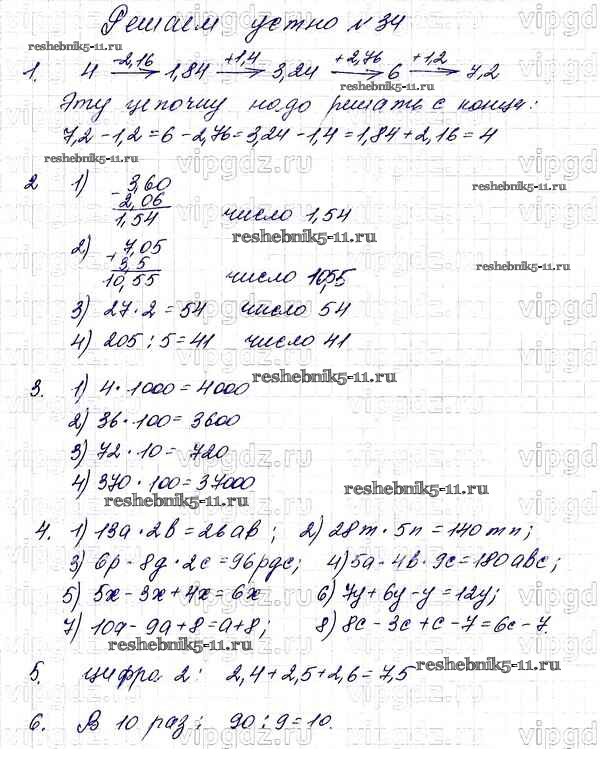 Решаем устно №34
reshebnik5-11.ru
1. 4 -2,16→ 1,84 +1,4→ 3,24 +2,76→ 6 +1,2→ 7,2
Эту цепочку надо решать с конца:
7,2 - 1,2 = 6 - 2,76 = 3,24 - 1,4 = 1,84 + 2,16 = 4
reshebnik5-11.ru
2 1) - 3,60
2,06
1,54 число 1,54
reshebnik5-11.ru
reshebnik5-11.ru
2) + 7,05
3,5
10,55 число 10,55
reshebnik5-11.ru
3) 27 · 2 = 54 число 54
4) 205 : 5 = 41 число 41
reshebnik5-11.ru
3. 1) 4 · 1000 = 4000
2) 36 · 100 = 3600
3) 72 · 10 = 720
4) 370 · 100 = 37000
reshebnik5-11.ru
reshebnik5-11.ru
4. 1) 13a · 2b = 26ab ; 2) 28m · 5n = 140mn;
3) 6p · 8g · 2c = 96pgc; 4) 5a · 4b · 9c = 180abc;
5) 5x - 3x + 4x = 6x 6) 7y + 6y - y = 12y;
7) 10a - 9a + 8 = a + 8; 8) 8c - 3c + c - 7 = 6c - 7.
reshebnik5-11.ru
5. цифра 2: 2,4 + 2,5 + 2,6 = 7,5
reshebnik5-11.ru
6. В 10 раз; 90 : 9 = 10.
vipgdz.ru